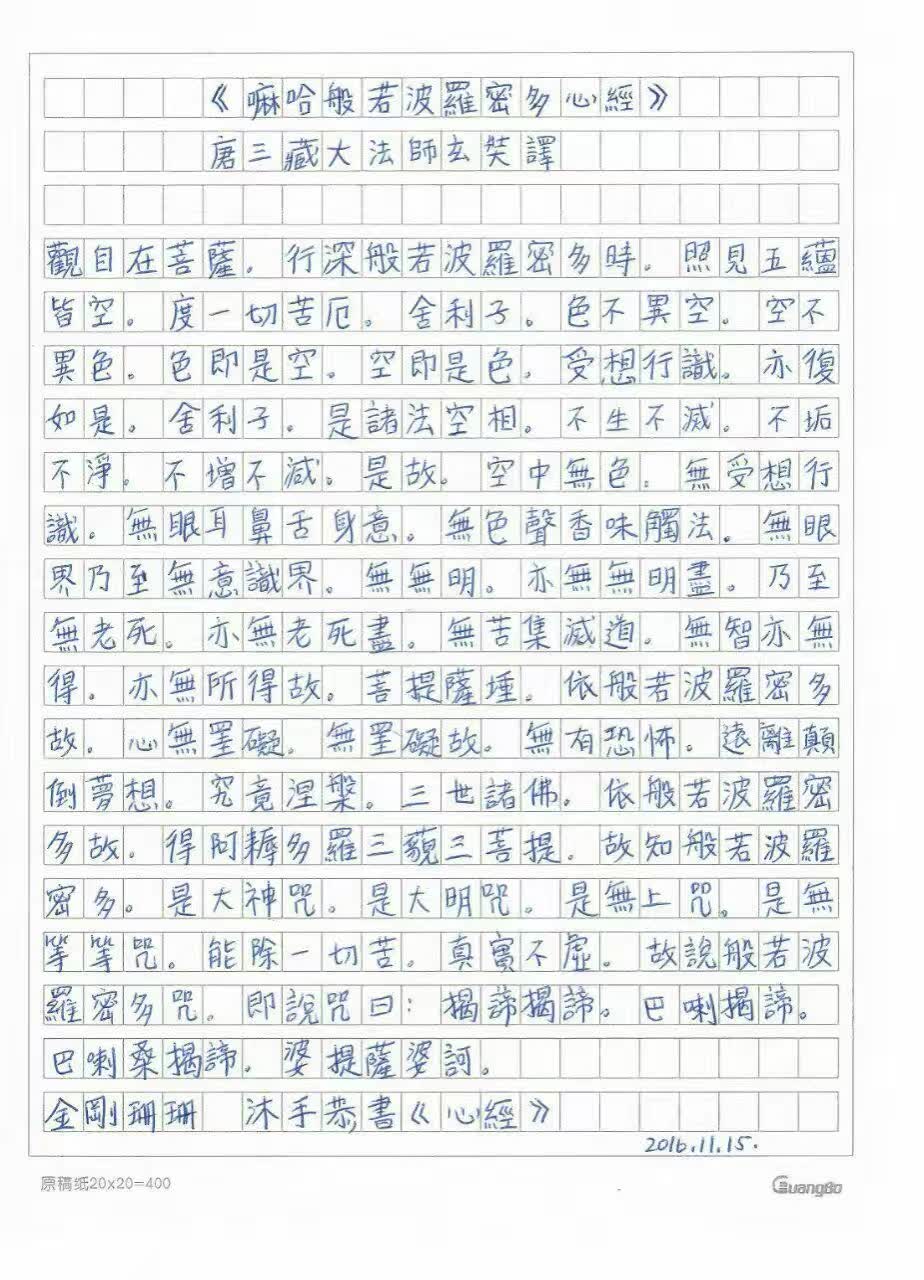 《嘛哈般若波羅密多心經》
唐三藏大法師玄奘譯
觀自在菩薩。行深般若波羅密多時。照見五蘊
皆空。度一切苦厄。舍利子。色不異空。空不
異色。色即是空。空即是色。受想行識。亦復
如是。舍利子。是諸法空相。不生不滅。不垢
不淨。不增不減。是故。空中無色。無受想行
識。無眼耳鼻舌身意。無色聲香味觸法。無眼
界乃至無意識界。無無明。亦無無明盡。乃至
無老死。亦無老死盡。無苦集滅道。無智亦無
得。亦無所得故。菩提薩埵。依般若波羅密多
故。心無罣礙。無罣礙故。無有恐怖。遠離顛
倒夢想。究竟涅槃。三世諸佛。依般若波羅密
多故。得阿耨多羅三藐三菩提。故知般若波羅
密多。是大神咒。是大明咒。是無上咒。是無
等等咒。能除一切苦。真實不虛。故說般若波
羅密多咒。即說咒曰：揭諦揭諦。巴喇揭諦。
巴喇桑揭諦。婆提薩婆訶。
金剛珊珊 沐手恭書《心經》
2016.11.15.
原稿纸20x20=400
GuangBo